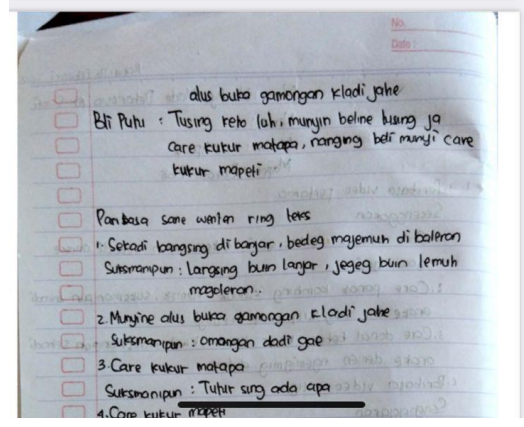 No.
Date:
alus buka gamongan kladi jahe
Bli Putu : Tusing keto luh, munyin beline tusing ja
care kukur matapa, nanging beli munyi care
kukur mapeti
Paribasa sane wenten ring teks
1. Sekadi bangsing di banjar, bedeg majemuh di baleran
Suksmanipun : Langsing buin lanjar, jegeg buin lemuh
magoleran..
2. Munyine alus buka gamongan kladi jahe
Suksmanipun : omongan dadi gae
3. Care kukur matapa
Suksmanipun : Tutur sing ada apa
4. Care kukur mapeti